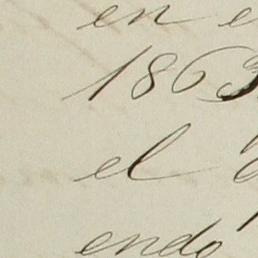 en e
1863
el
endo